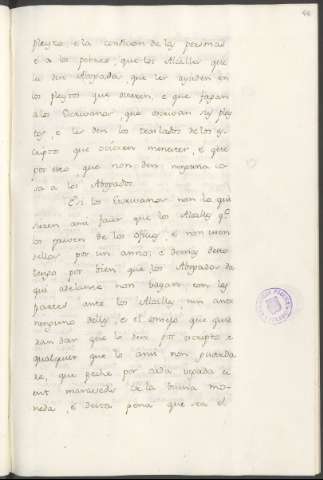 44
pleyto, e la condicion de las personas
e a los pobres, que los Alcalles que
le den Abogada, que les ayuden en
los pleytos que ovieren, e que fagan
a los Escrivanos, que escrivan su pley
to, e les den los traslados de los es
criptos que ovieren menester, e que
por esto que non den ninguna co
sa a los Abogados.
E si los Escrivanos non lo qui
sieren ansi facer que los Alcalles q.e
los priven de los oficios, e non usen
dellos por un anno; e demas desto
tengo por bien, que los Abogados da
qui adelante non vayan con las
partes ante los Alcalles, nin ante
ninguno dellos, e el consejo que quie
ran dar que lo den por escripto e
qualquier que lo ansi non
que peche por cada vegada ci
ent maravedis de la buena mo
neda, e desta pena que sea el